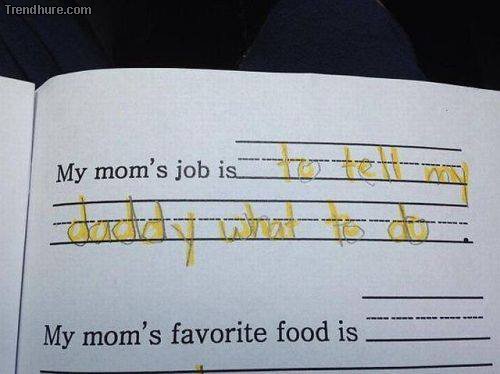 Trendhure.com
My mom's job is to tell my
daddy what to do.
My mom's favorite food is